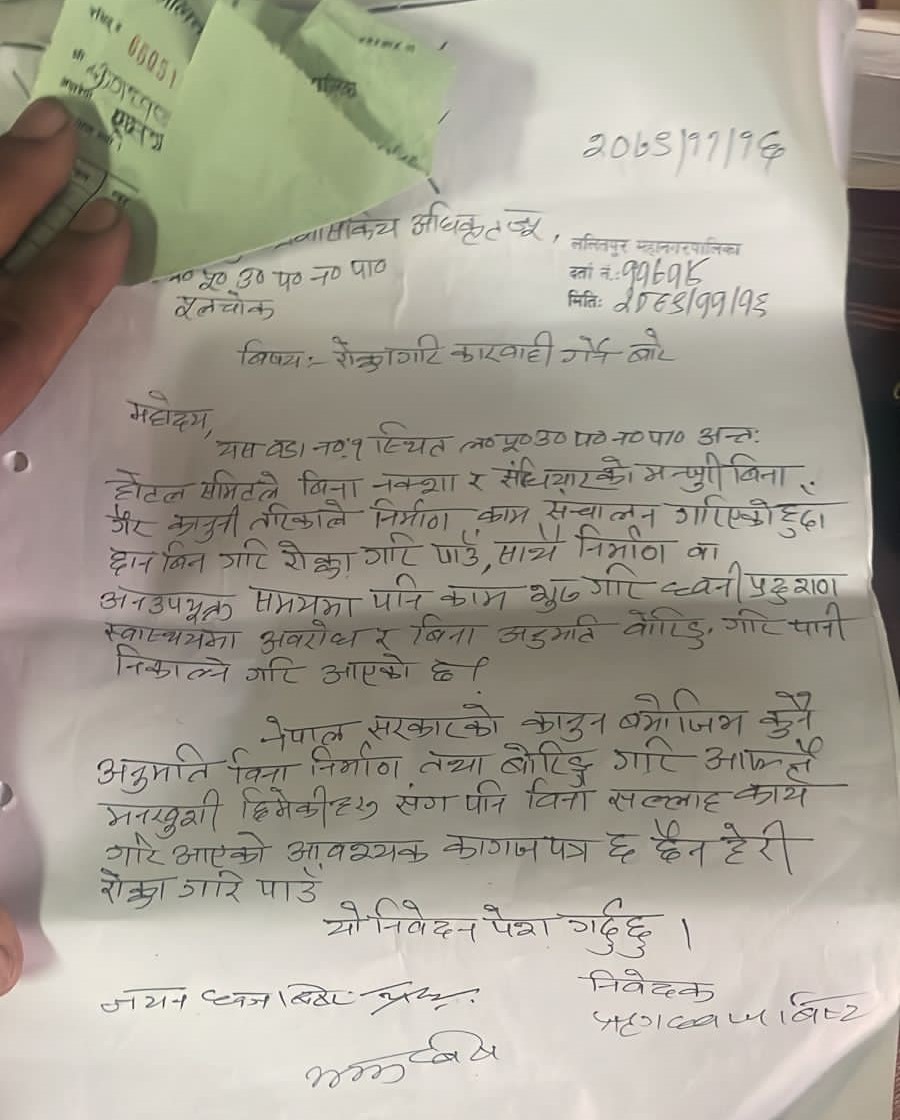 05051
२०७९/११/१६
प्रशासकिय अधिकृतज्यू,
ल० पु० उ० प० न० पा०
पुलचोक
ललितपुर महानगरपालिका
दर्ता नं.: ११६१४
मिति: २०७९/११/१६
बिषय:- रोक्कागरि कारवाही गर्ने बारे
महोदय,
यस वडा न०.१ स्थित ल० पु० उ० प० न० पा० अन्त:
होटल समिटले बिना नक्शा र संधियारको मन्जुरी बिना
गैर कानुनी तरिकाले निर्माण काम सन्चालन गरिएको हुदा
छान बिन गरि रोक्का गरि पाउँ, साथै निर्माण वा
अनउपयुक्त समयमा पनि काम शुरु गरि ध्वनी प्रदुशण
स्वास्थयमा अवरोध र बिना अनुमति बोरिङ गरि पानी
निकाल्ने गरि आएको छ।
नेपाल सरकारको कानुन बमोजिम कुनै
अनुमति विना निर्माण तथा बोरिङ्ग गरि आफ्नै
मनखुशी छिमेकीहरु संग पनि विना सल्लाह कार्य
गरि आएको आवश्यक कागजपत्र छ छैन हेरी
रोक्का गरि पाउँ
यो निवेदन पेश गर्दुछु।
निवेदक